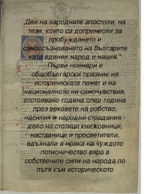 "Ден на народните апостоли, на
тези, които са допринесли за
пробуждането и
самосъзнаването на българите
като единен народ и нация."
Първи ноември е
общобългарски празник на
историческата памет и на
националното ни самочувствие,
отстоявано година след година
през вековете на робство,
насилия и народни страдания
- дело на стотици книжовници,
наставници и просветители,
вдъхнали в мрака на чуждото
потисничество вяра в
собствените сили на народа по
пътя към историческото